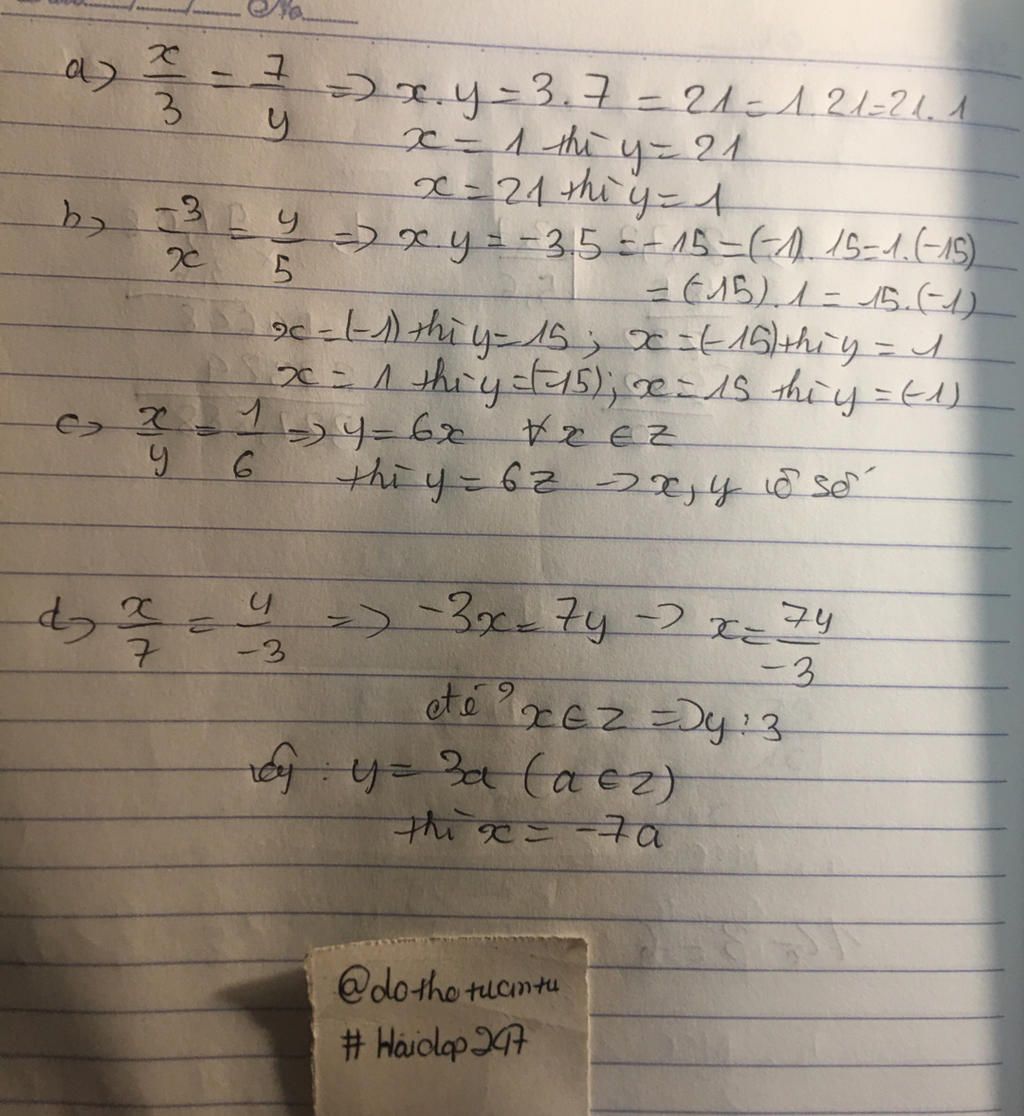 No
a) x/3 = 7/y => x.y = 3.7 = 21 = 1.21=21.1
x = 1 thì y = 21
x = 21 thì y = 1
b) -3/x = y/5 => x.y = -3.5 = -15 = (-1).15=1.(-15)
= (-15).1 = 15.(-1)
x = (-1) thì y = 15; x = (-15) thì y = 1
x = 1 thì y = (-15); x = 15 thì y = (-1)
c) x/y = 1/6 => y = 6x ∀ x ∈ Z
thì y = 6Z -> x, y vô số
d) x/7 = y/-3 => -3x = 7y -> x = 7y/-3
để x ∈ Z => y ⋮ 3
Vậy : y = 3a (a ∈ Z)
thì x = -7a
@dothotucintu
# Hoidap247